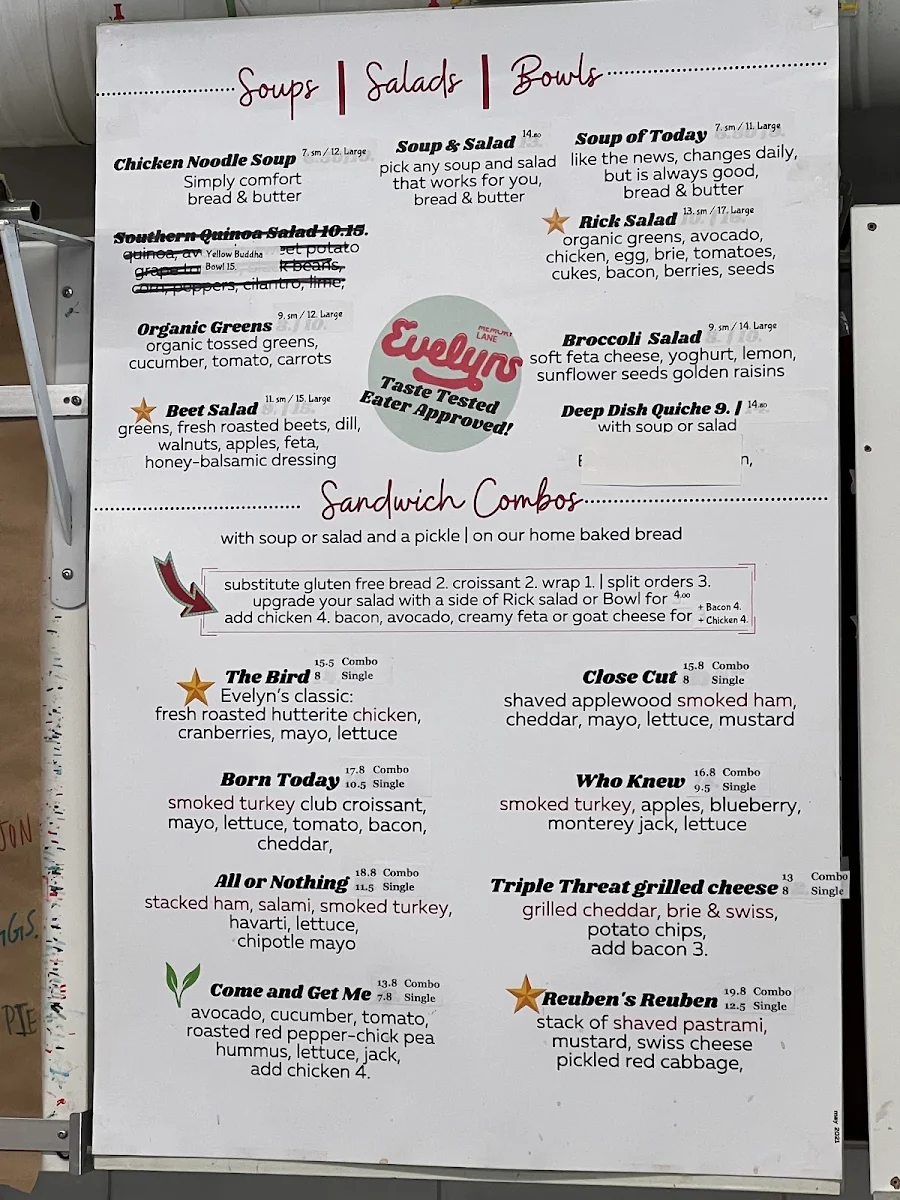 Soups | Salads | Bowls
Chicken Noodle Soup 7. sm / 12. Large
Simply comfort
bread & butter
Soup & Salad 14.80
pick any soup and salad
that works for you,
bread & butter
Soup of Today 7. sm / 11. Large
like the news, changes daily,
but is always good,
bread & butter
Southern Quinoa Salad 10.15.
quinoa, av Yellow Buddha et potato
Bowl 15. k beans,
corn, peppers, cilantro, lime,
Rick Salad 13. sm / 17. Large
organic greens, avocado,
chicken, egg, brie, tomatoes,
cukes, bacon, berries, seeds
Organic Greens 9. sm / 12. Large
organic tossed greens,
cucumber, tomato, carrots
MEMORY
LANE
Evelyns
Taste Tested
Eater Approved!
Broccoli Salad 9. sm / 14. Large
soft feta cheese, yoghurt, lemon,
sunflower seeds golden raisins
Beet Salad 11. sm / 15. Large
greens, fresh roasted beets, dill,
walnuts, apples, feta,
honey-balsamic dressing
Deep Dish Quiche 9. / 14.80
with soup or salad
n,
Sandwich Combos
with soup or salad and a pickle | on our home baked bread
substitute gluten free bread 2. croissant 2. wrap 1. | split orders 3.
upgrade your salad with a side of Rick salad or Bowl for 4.00
add chicken 4. bacon, avocado, creamy feta or goat cheese for + Bacon 4.
+ Chicken 4.
The Bird 15.5 Combo
8 Single
Evelyn's classic:
fresh roasted hutterite chicken,
cranberries, mayo, lettuce
Close Cut 15.8 Combo
8 Single
shaved applewood smoked ham,
cheddar, mayo, lettuce, mustard
Born Today 17.8 Combo
10.5 Single
smoked turkey club croissant,
mayo, lettuce, tomato, bacon,
cheddar,
Who Knew 16.8 Combo
9.5 Single
smoked turkey, apples, blueberry,
monterey jack, lettuce
All or Nothing 18.8 Combo
11.5 Single
stacked ham, salami, smoked turkey,
havarti, lettuce,
chipotle mayo
Triple Threat grilled cheese 13 Combo
8 Single
grilled cheddar, brie & swiss,
potato chips,
add bacon 3.
Come and Get Me 13.8 Combo
7.8 Single
avocado, cucumber, tomato,
roasted red pepper-chick pea
hummus, lettuce, jack,
add chicken 4.
Reuben's Reuben 19.8 Combo
12.5 Single
stack of shaved pastrami,
mustard, swiss cheese
pickled red cabbage,
may 2021
PIE